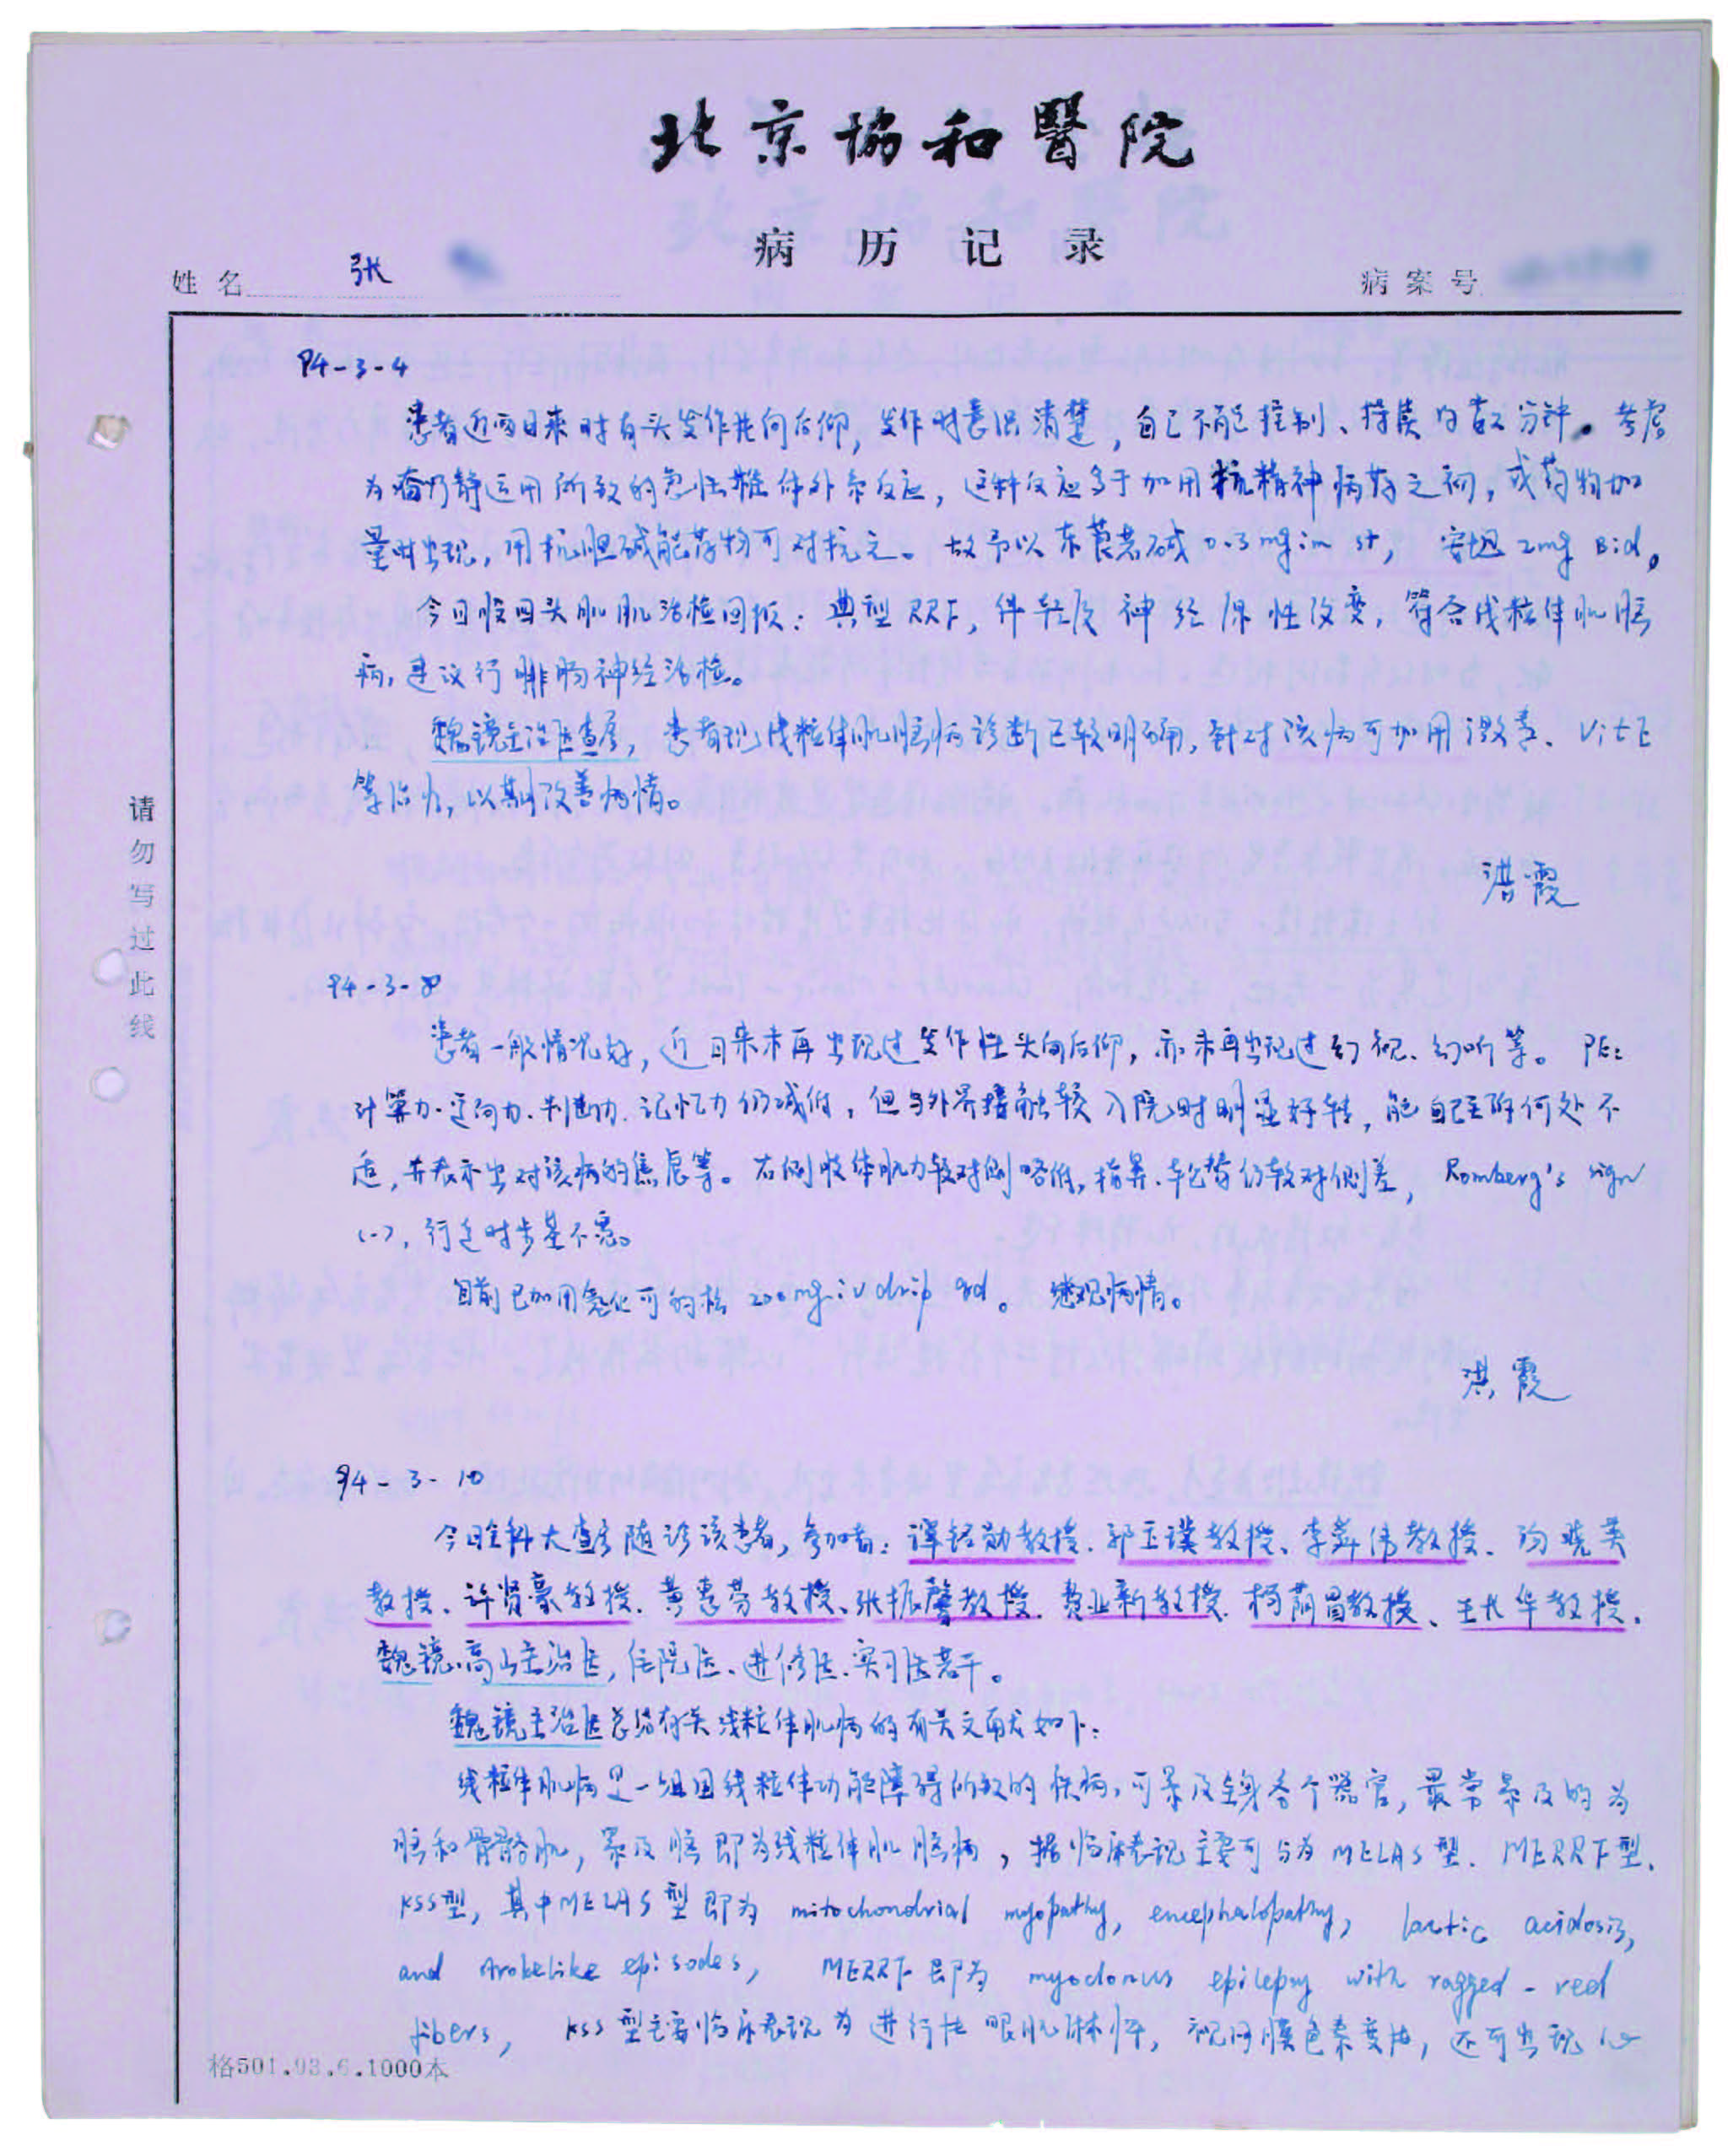 北京協和醫院
病历记录
姓名 张
病案号
94-3-4
患者近两日来时有头发作性向后仰，发作时意识清楚，自己不能控制、持续约数分钟。考虑
为奋乃静运用所致的急性椎体外系反应，这种反应多于加用抗精神病药之初，或药物加
量时出现，用抗胆碱能药物可对抗之。故予以东莨若碱0.3mg im st，安坦2mg Bid。
今日股四头肌肌活检回报：典型RRF，伴轻度神经原性改变，符合线粒体肌脑
病，建议行腓肠神经活检。
魏镜主治医查房，患者现线粒体肌脑病诊断已较明确，针对该病可加用激素、VitE
等治疗，以期改善病情。
洪霞
94-3-8
患者一般情况好，近日来未再出现过发作性头向后仰，亦未再出现过幻视、幻听等。PE：
计算力、定向力、判断力、记忆力仍减低，但与外界接触较入院时明显好转，能自己主诉何处不
适，并表示出对该病的焦虑等。右侧肢体肌力较对侧略低，指鼻、轮替仍较对侧差，Romberg's sign
(-)，行走时步基不宽。
目前已加用氢化可的松200mg iv drip qd。继观病情。
洪霞
94-3-10
今日全科大查房随诊该患者，参加者：谭铭勋教授、郭玉璞教授、李舜伟教授、汤晓芙
教授、许贤豪教授、黄惠芬教授、张振馨教授、费业新教授、柯荫昌教授、王长华教授、
魏镜、高山主治医，住院医、进修医、实习医若干。
魏镜主治医总结有关线粒体肌病的有关文献如下：
线粒体肌病是一组因线粒体功能障碍所致的疾病，可累及全身各个器官，最常累及的为
脑和骨骼肌，累及脑即为线粒体肌脑病，据临床表现主要可分为MELAS型、MERRF型、
KSS型，其中MELAS型即为mitochondrial myopathy, encephalopathy, lactic acidosis,
and strokelike episodes, MERRF即为myoclonus epilepsy with ragged-red
fibers, KSS型主要临床表现为进行性眼肌麻痹，视网膜色素变性，还可出现心
请勿写过此线
格501.93.6.1000本